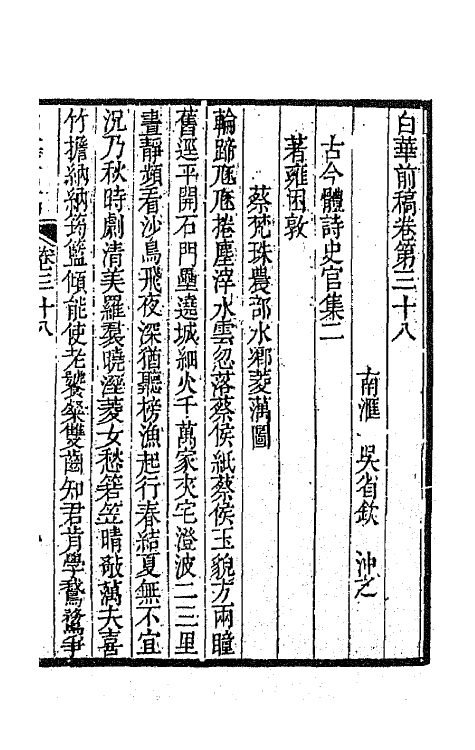 白華前稿卷第三十八
南滙 吳省欽 沖之
古今體詩史官集二
著雍困敦
蔡梵珠農部水鄉菱藕圖
輪蹄尵尵捲塵滓水雲忽落蔡侯紙蔡侯玉貌方兩瞳
舊逕平開石門壘遶城細火千萬家夾宅澄波二三里
晝靜頻看沙鳥飛夜深猶聽榜漁起行春結夏無不宜
況乃秋時劇清美羅裠曉溼菱女愁箬笠晴敧藕夫喜
竹擔納納筠籃傾能使老饕粲雙齒知君肯學我鴛鴦爭
卷三十八